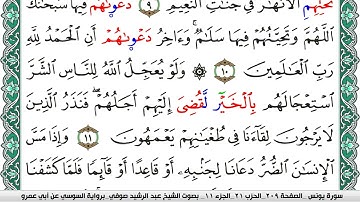 تَحْتِهِمُ الْأَنْهَٰرُ فِي جَنَّٰتِ النَّعِيمِ ٩ دَعْوَىٰهُمْ فِيهَا سُبْحَٰنَكَ
اللَّهُمَّ وَتَحِيَّتُهُمْ فِيهَا سَلَٰمٌ وَءَاخِرُ دَعْوَىٰهُمْ أَنِ الْحَمْدُ لِلَّهِ
رَبِّ الْعَٰلَمِينَ ١٠ ۞ وَلَوْ يُعَجِّلُ اللَّهُ لِلنَّاسِ الشَّرَّ
اسْتِعْجَالَهُم بِالْخَيْر لَّقُضِيَ إِلَيْهِمْ أَجَلُهُمْ فَنَذَرُ الَّذِينَ
لَا يَرْجُونَ لِقَاءَنَا فِي طُغْيَٰنِهِمْ يَعْمَهُونَ ١١ وَإِذَا مَسَّ
الْإِنسَٰنَ الضُّرُّ دَعَانَا لِجَنۢبِهِ أَوْ قَاعِدًا أَوْ قَائِمًا فَلَمَّا كَشَفْنَا
سورة يونس _ الصفحة ٢٠٩_ الحزب ٢١_ الجزء ١١ _ بصوت الشيخ عبد الرشيد صوفي_ برواية السوسي عن أبي عمرو